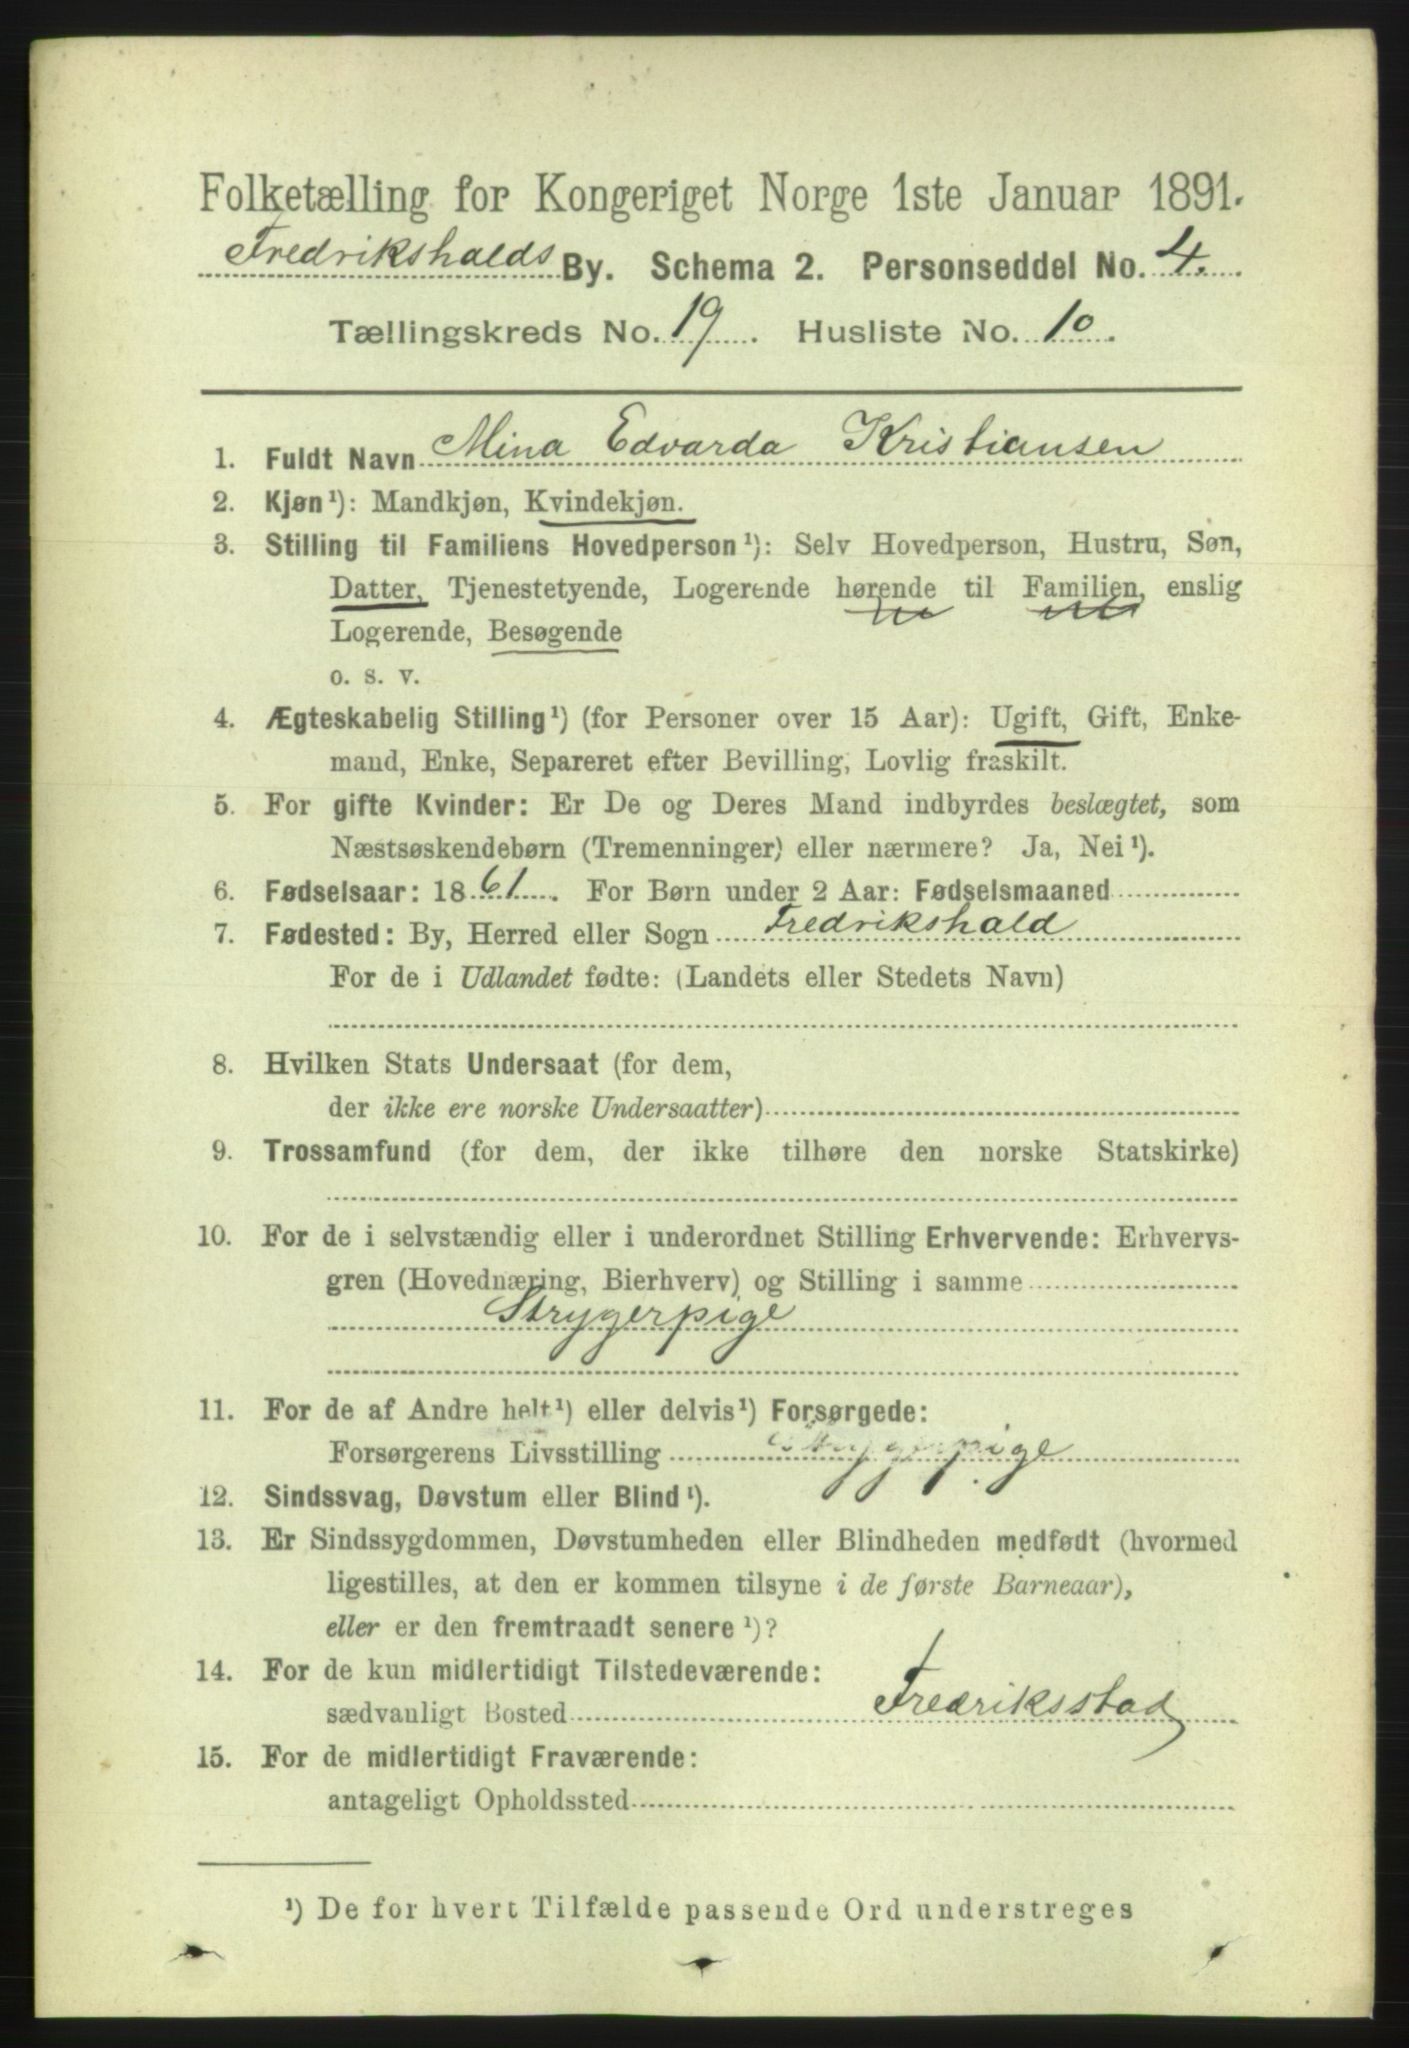 Folketælling for Kongeriget Norge 1ste Januar 1891.
Fredrikshalds By. Schema 2. Personseddel No. 4.
Tællingskreds No. 19. Husliste No. 10.
1. Fuldt Navn Mina Edvarda Kristiansen
2. Kjøn¹): Mandkjøn, Kvindekjøn.
3. Stilling til Familiens Hovedperson¹): Selv Hovedperson, Hustru, Søn,
Datter, Tjenestetyende, Logerende hørende til Familien, enslig
Logerende, Besøgende
o. s. v.
4. Ægteskabelig Stilling¹) (for Personer over 15 Aar): Ugift, Gift, Enke-
mand, Enke, Separeret efter Bevilling, Lovlig fraskilt.
5. For gifte Kvinder: Er De og Deres Mand indbyrdes beslægtet, som
Næstsøskendebørn (Tremenninger) eller nærmere? Ja, Nei¹).
6. Fødselsaar: 1861. For Børn under 2 Aar: Fødselsmaaned
7. Fødested: By, Herred eller Sogn Fredrikshald
For de i Udlandet fødte: (Landets eller Stedets Navn)
8. Hvilken Stats Undersaat (for dem,
der ikke ere norske Undersaatter)
9. Trossamfund (for dem, der ikke tilhøre den norske Statskirke)
10. For de i selvstændig eller i underordnet Stilling Erhvervende: Erhvervs-
gren (Hovednæring, Bierhverv) og Stilling i samme
Strygerpige
11. For de af Andre helt¹) eller delvis¹) Forsørgede:
Forsørgerens Livsstilling Strygerpige
12. Sindssvag, Døvstum eller Blind¹).
13. Er Sindssygdommen, Døvstumheden eller Blindheden medfødt (hvormed
ligestilles, at den er kommen tilsyne i de første Barneaar),
eller er den fremtraadt senere¹)?
14. For de kun midlertidigt Tilstedeværende:
sædvanligt Bosted Fredriksstad
15. For de midlertidigt Fraværende:
antageligt Opholdssted
¹) De for hvert Tilfælde passende Ord understreges